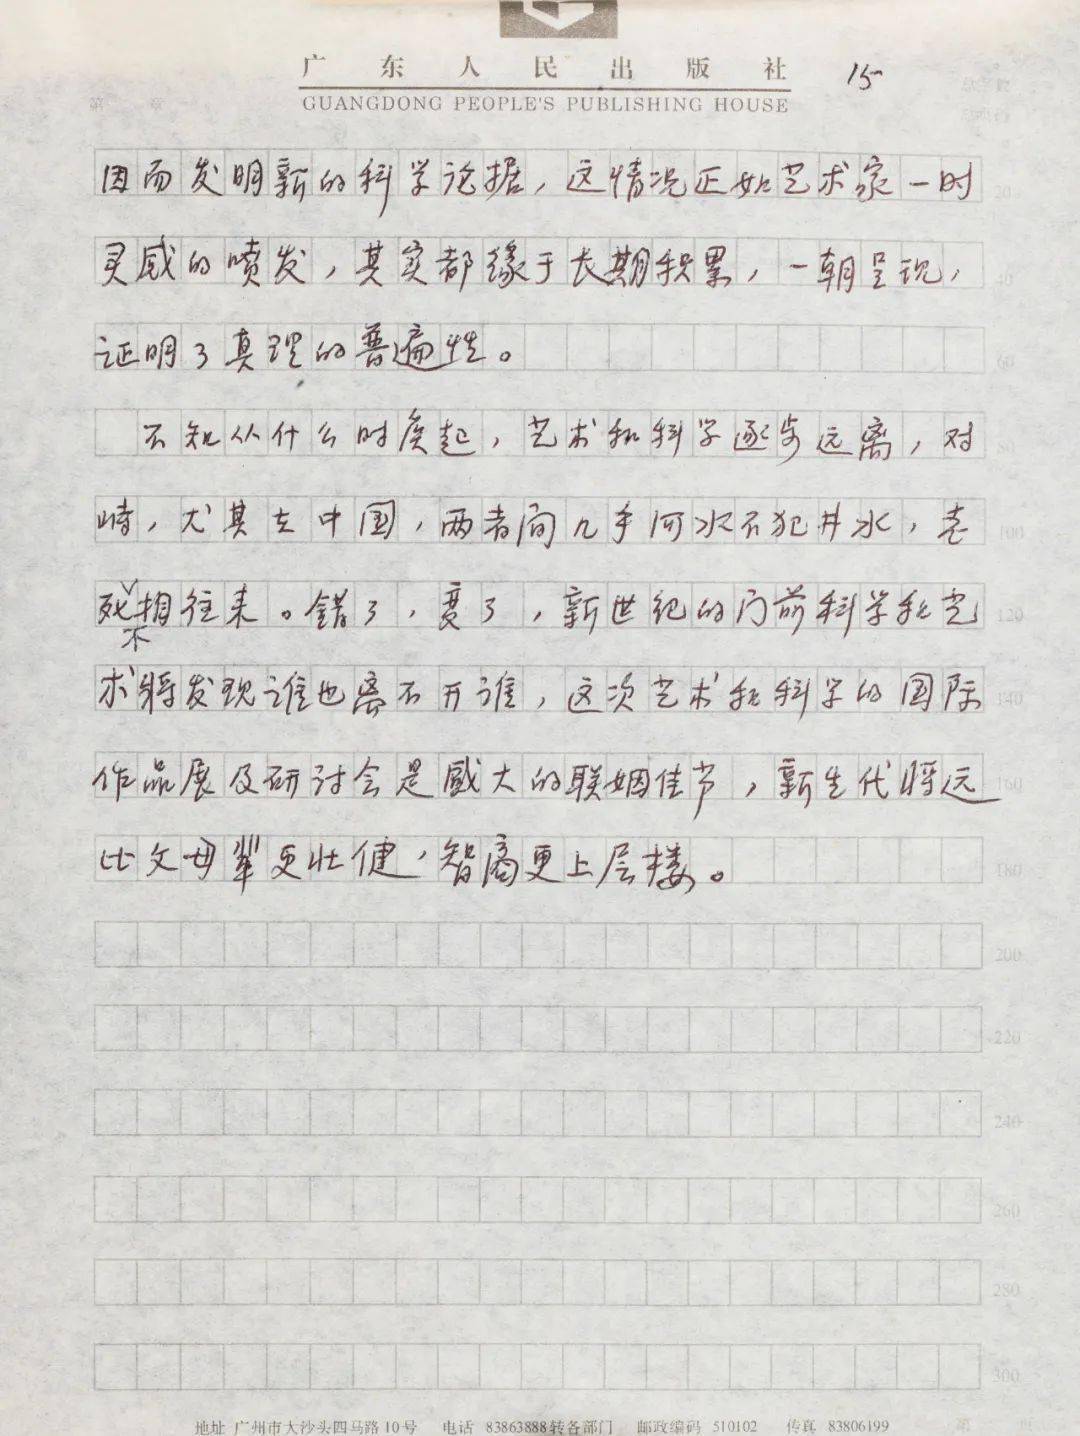 广东人民出版社 15
GUANGDONG PEOPLE'S PUBLISHING HOUSE
第 章
因而发明新的科学论据，这情况正如艺术家一时 20
灵感的喷发，其实都缘于长期积累，一朝呈现， 40
证明了真理的普遍性。 60
不知从什么时候起，艺术和科学逐步远离，对 80
峙，尤其在中国，两者间几乎河水不犯井水，老 100
死不相往来。错了，变了，新世纪的门前科学和艺 120
术将发现谁也离不开谁，这次艺术和科学的国际 140
作品展及研讨会是盛大的联姻佳节，新生代将远 160
比父母辈更壮健，智商更上层楼。 180
200
220
240
260
280
300
地址 广州市大沙头四马路10号 电话 83863888转各部门 邮政编码 510102 传真 83806199 第 页